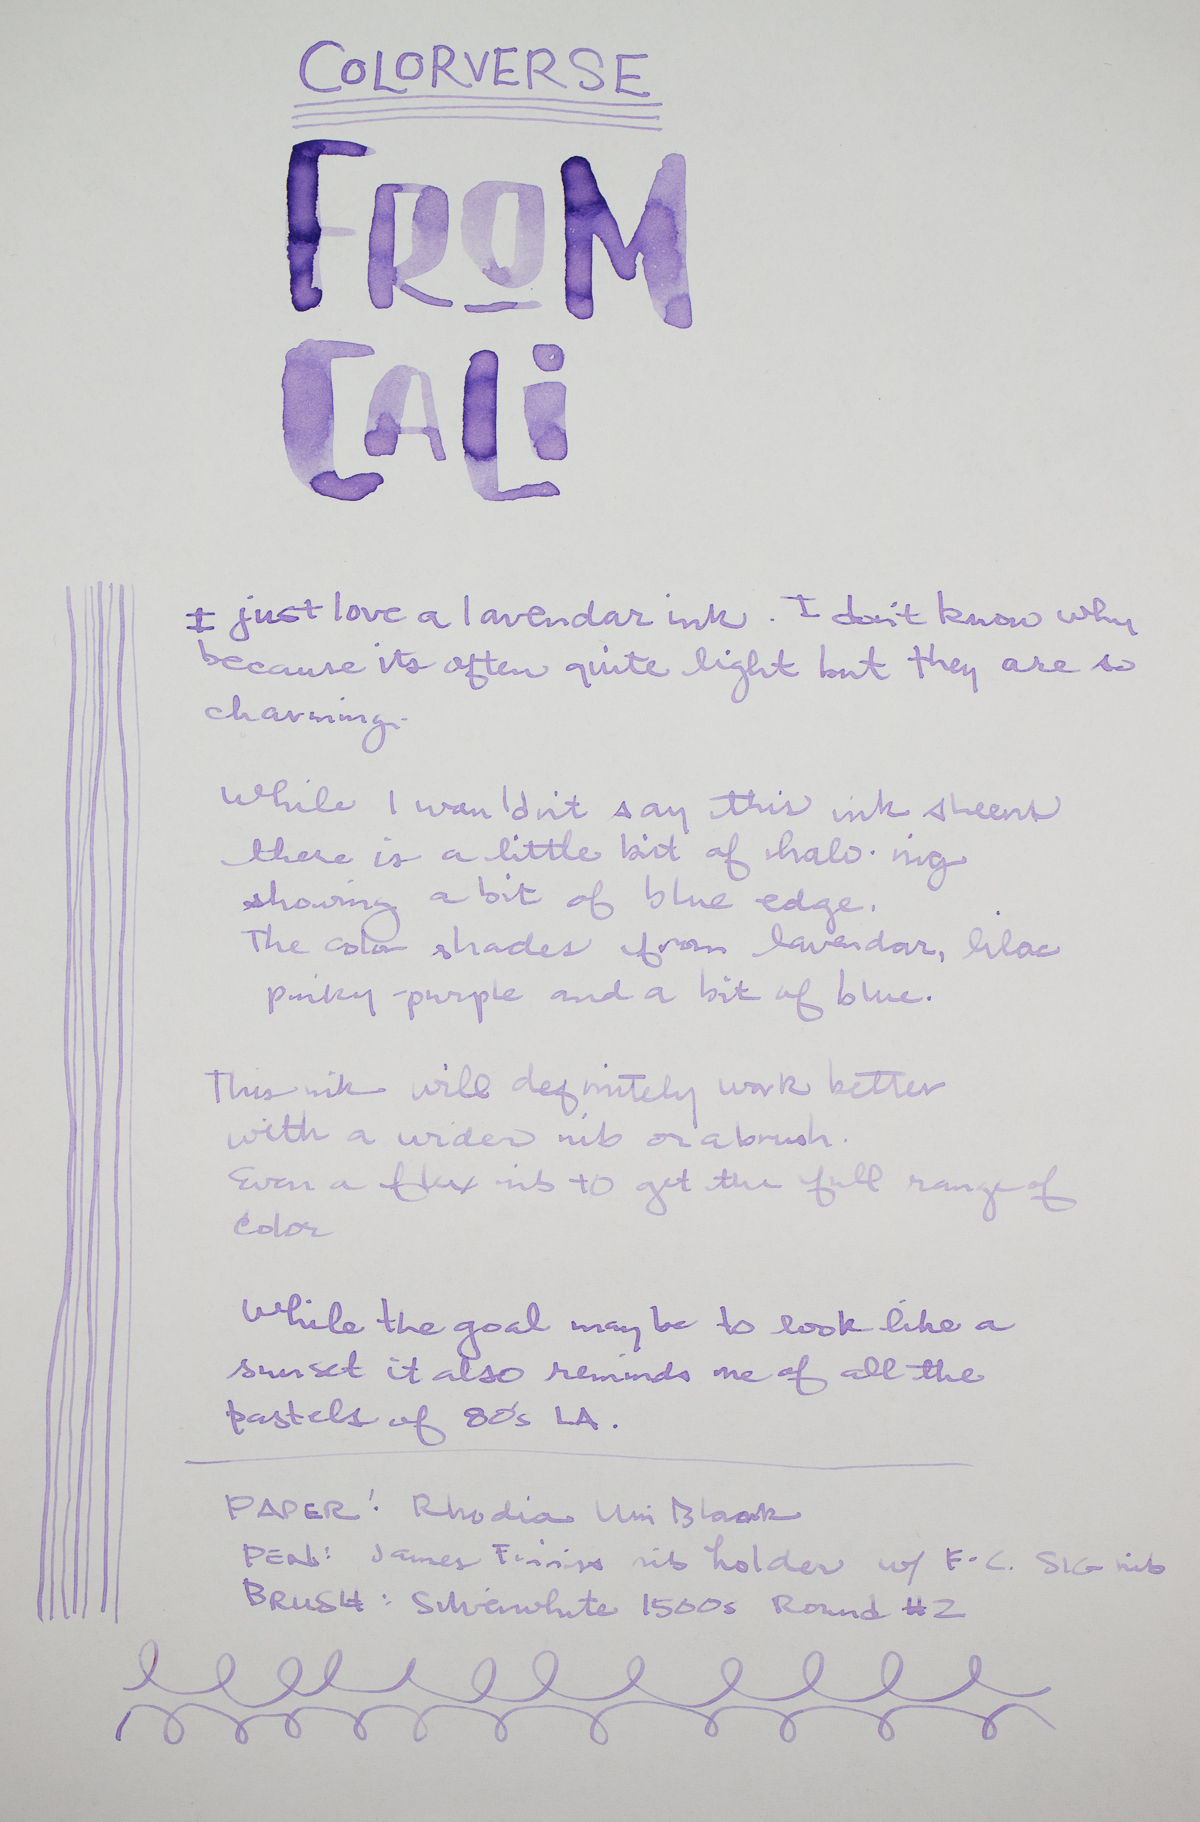 COLORVERSE
FROM
CALi
I just love a lavendar ink. I don't know why
because its often quite light but they are so
charming.
While I wouldn't say this ink sheens
there is a little bit of halo-ing
showing a bit of blue edge.
The color shades from lavendar, lilac
pinky-purple and a bit of blue.
This ink will definitely work better
with a wider nib or a brush.
Even a flex nib to get the full range of
color
While the goal may be to look like a
sunset it also reminds me of all the
pastels of 80's LA.
PAPER: Rhodia Uni Blank
PEN: James nib holder w/ F-C. SIG nib
BRUSH: Silverwhite 1500s Round #2